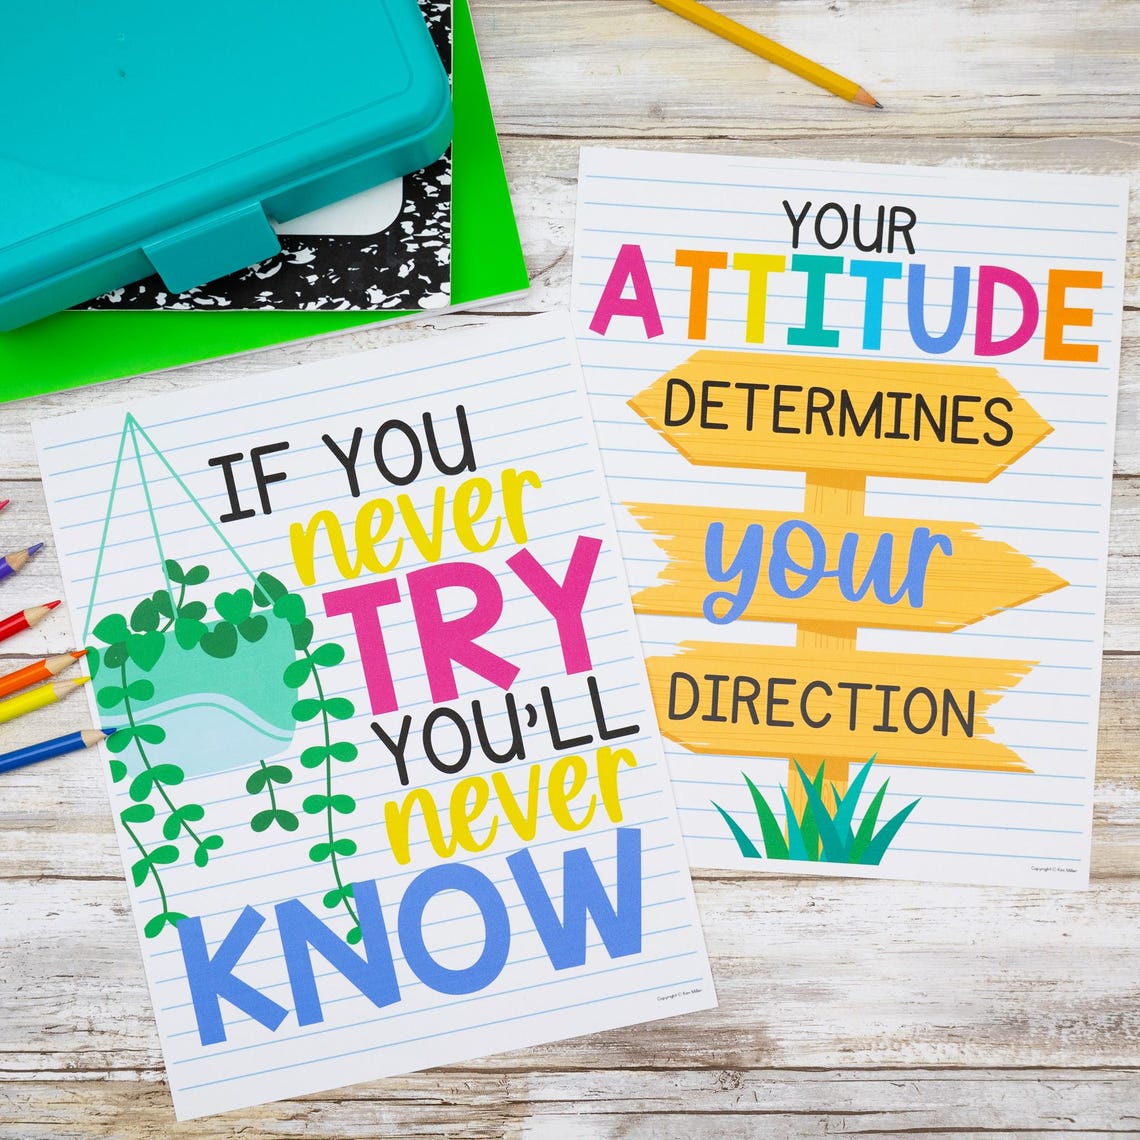 YOUR
ATTITUDE
DETERMINES
your
DIRECTION
Copyright © Ken Miller
IF YOU
never
TRY
YOU'LL
never
KNOW
Copyright © Ken Miller